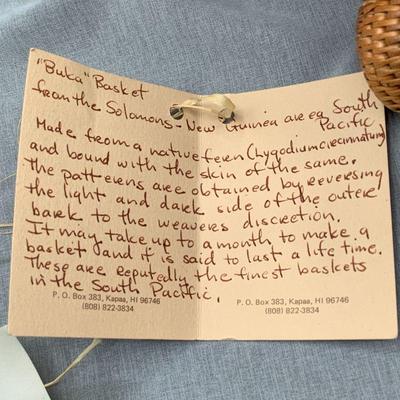 "Buka" Basket
from the Solomons - New Guinea area South
Pacific.
Made from a native fern (Lygodium circinnatum)
and bound with the skin of the same.
The patterens are obtained by reversing
the light and dark side of the outer
bark to the weavers discretion.
It may take up to a month to make a
basket and it is said to last a life time.
These are reputedly the finest baskets
in the South Pacific.
P. O. Box 383, Kapaa, HI 96746
(808) 822-3834
P. O. Box 383, Kapaa, HI 96746
(808) 822-3834